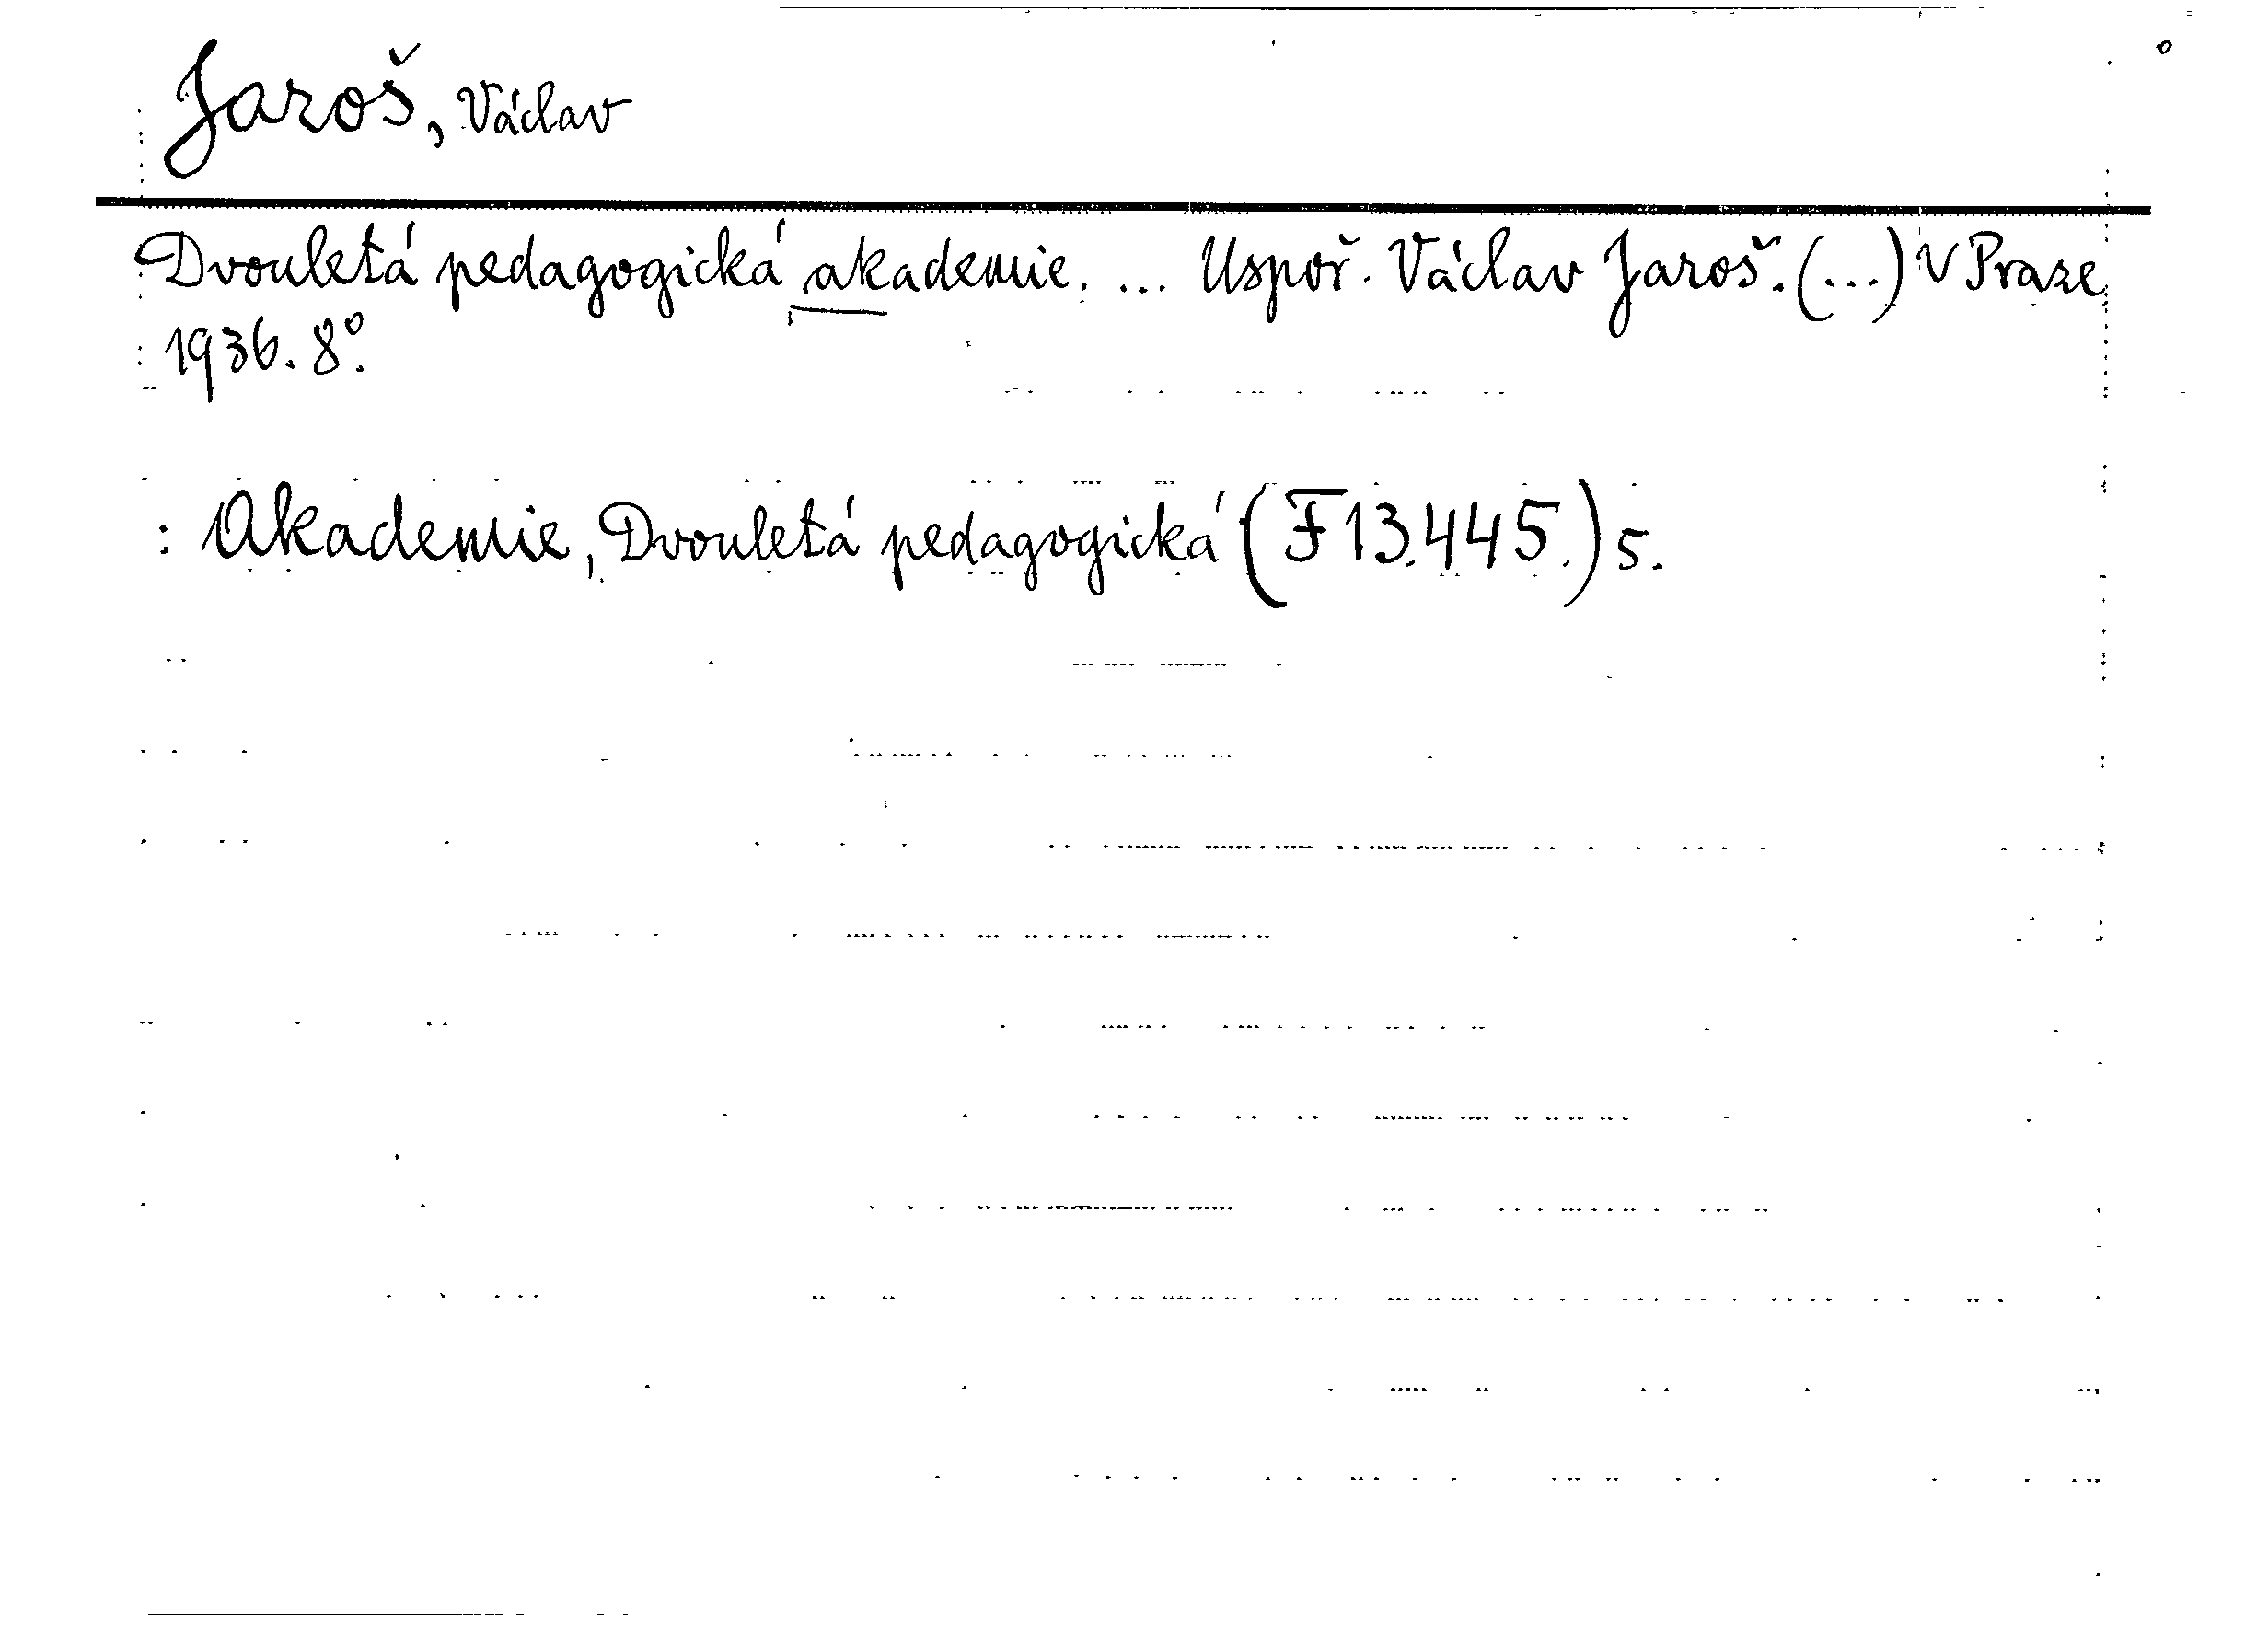 Jaroš, Václav
Dvouletá pedagogická akademie. ... Uspoř. Václav Jaroš. (...) V Praze
1936. 8°.
: Akademie, Dvouletá pedagogická (F 13.445.) 5.